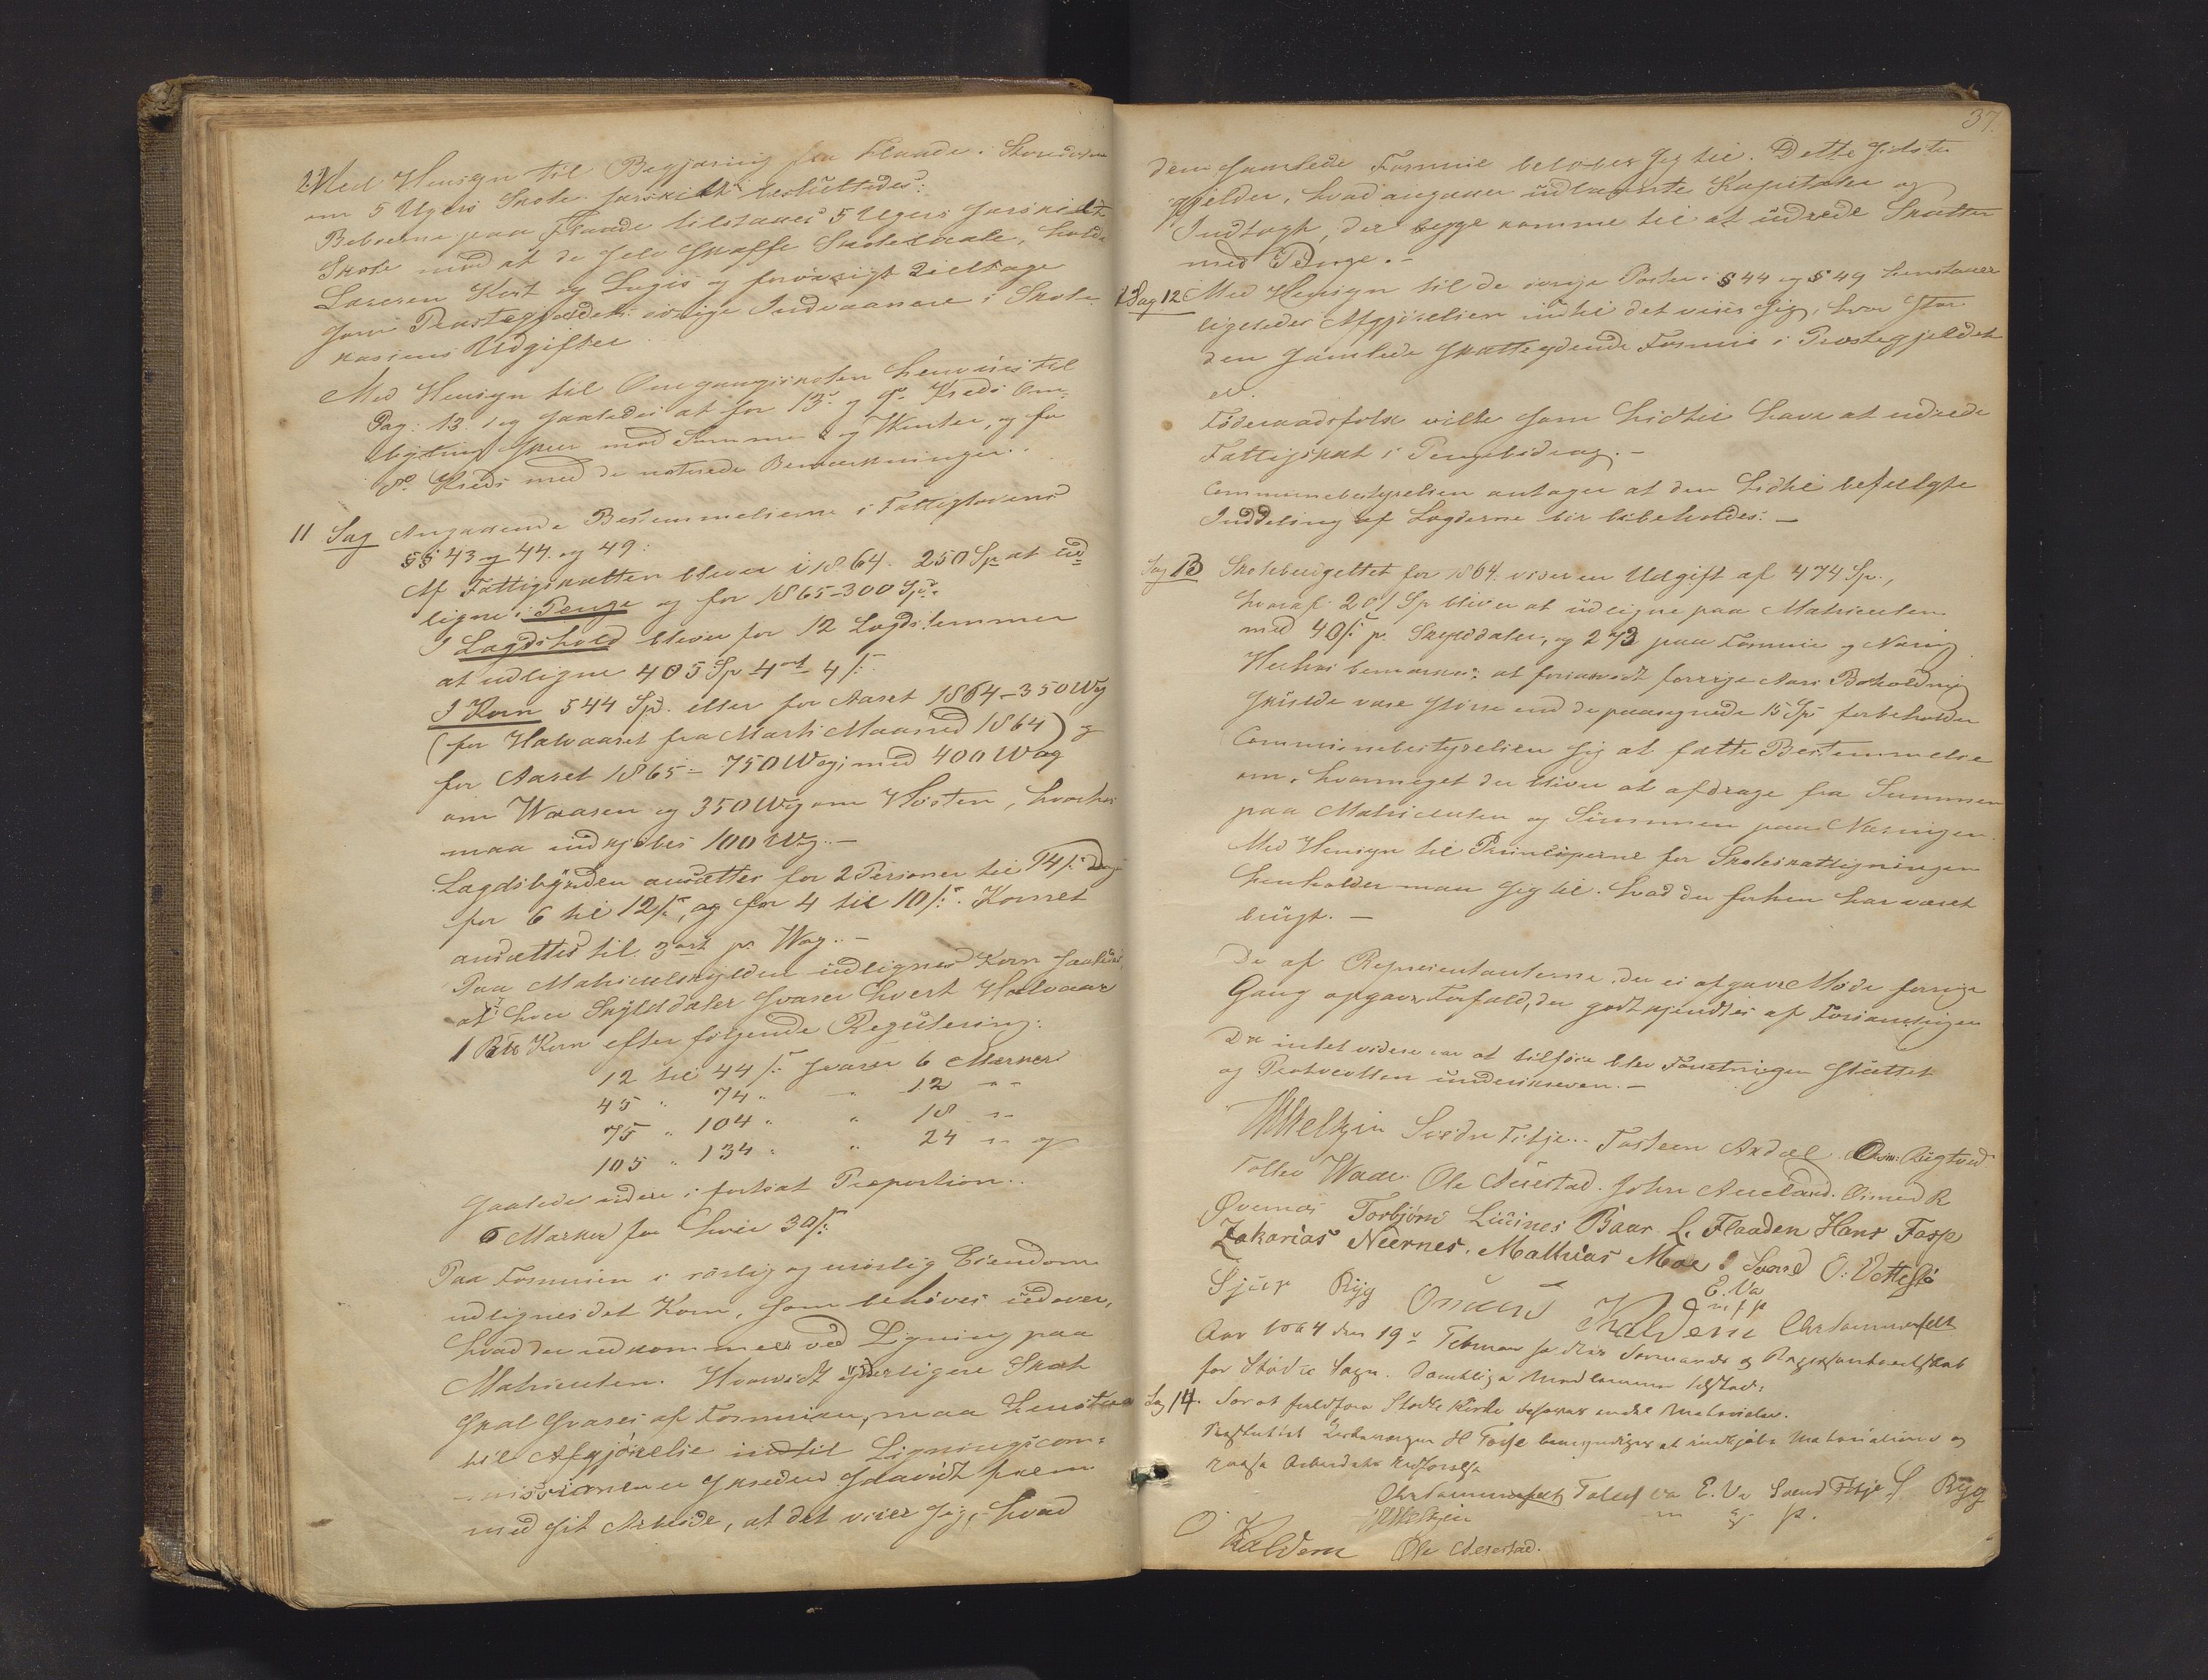 2. Med Hensyn til Begjæring fra Flaade i
om 5 Ugers Skole særskilt besluttedes:
Beboerne paa Flaade tilstaaes 5 Ugers særskilt
Skole mod at de selv skaffe Skolelocale, holde
Læreren Kost og Logis og forøvrigt deeltage
som Præstegjeldets øvrige Indvaanere i Skole-
kassens Udgifter.
Med Hensyn til Omgangsskolen henvises til
Pag: 13. og saaledes at for 13. og Kreds Om-
ligning skeer med Sommer og Vinter, og for
Kreds med de noterede Bemærkninger.
11 Sag Angaaende Bestemmelserne i Fattiglovens
§§ 43 og 44 og 49:
Af Fattigskatten bliver i 1864 250 Sp at ud-
ligne i Penge og for 1865 - 300 Spd.
I Lægdshold bliver for 12 Lægdslemmer
at udligne 405 Sp 4 ort 4 s.
I Korn 544 Spd. eller for Aaret 1864 - 350 Wog
(for Halvaaret fra Marts Maaned 1864) og
for Aaret 1865 - 750 Wog, med 400 Wog
om Waaren og 350 Wog om Høsten, hvorhos
maa indkjøbes 100 Wog. -
Lægdsbyrden ansættes for 2 Personer til 14 s. Dag
for 6 til 12 s, og for 4 til 10 s. Kornet
ansættes til 3 ort pr Wog. -
Paa Matriculskylden udlignes Korn saaledes,
at hver Skylddaler svarer hvert Halvaar
1 Korn efter følgende Regulering:
12 til 44 s svarer 6 Marker
45 " 74 " " 12 " "
75 " 104 " " 18 " "
105 " 134 " " 24 " " og
saaledes videre i fortsat Proportion.
6 Marker for hver 30 s.
Paa Formuen i rørlig og urørlig Eiendom
udlignes det Korn, som behøves udover,
hvad der udkommer ved Ligning paa
Matriculen. Hvorvidt yderligere Skat
skal svares af Formuen, maa henstaa
til Afgjørelse indtil Ligningscom-
missionen er skreden saavidt frem
med sit Arbeide, at det viser sig, hvad
37.
den samlede Formue beløber sig til. Dette sidste
gjelder, hvad angaaer udlaante Kapitaler og
Indtægt, der begge komme til at udrede Skatter
med Penge. -
Sag 12 Med Hensyn til de øvrige Poster i § 44 og § 49 henstaaer
ligeledes Afgjørelsen indtil det viser sig, hvor stor
den samlede skatteydende Formue i Præstegjeldet
er.
Føderaadsfolk ville som hidtil have at udrede
Fattigskat i Pengebidrag. -
Communebestyrelsen antager at den hidtil befulgte
Inddeling af Lægderne bør bibeholdes. -
Sag 13 Skolebudgettet for 1864 viser en Udgift af 474 Sp.,
hvoraf 201 Sp bliver at udligne paa Matriculen
med 40 s. p. Skylddaler, og 273 paa Formue og Næring
Herhos bemærkes: at forsaavidt forrige Aars Beholdning
skulde være større end de paaregnede 15 Sp forbeholder
Communebestyrelsen sig at fatte Bestemmelse
om, hvormeget der bliver at afdrage fra Summen
paa Matriculen og Summen paa Næringen.
Med Hensyn til Principerne for Skoleskatligningen
henholder man sig til hvad der forhen har været
brugt. -
De af Repræsentanterne, der ei afgave Møde forrige
Gang opgave Forfald, der godtkjendtes af Forsamlingen
Da intet videre var at tilføre blev Forretningen sluttet
og Protocollen underskreven. -
Svedn Fitje. Tosteen Axdal.
Tollev Waae. Ole Neerstad. John Aueland.
Øvernæs Torbjørn Baar L. Flaaden Hans Fosse
Zakarias Neernes. Mathias Moe Svend O:
Sjur Ryg Onund Kaldem E. Va
m f p
Aar 1864 den 19de Februar Formands og Repræsentantskab
for Sogn. Samtlige Medlemmer
Sag 14. For at Kirke Materialer.
H bemyndiges at indkjøbe Materialierne og
Arbeidets Udførelse
E. Va Svend Fitje S Ryg
m f p.
O. Kaldem Ole Neerstad.